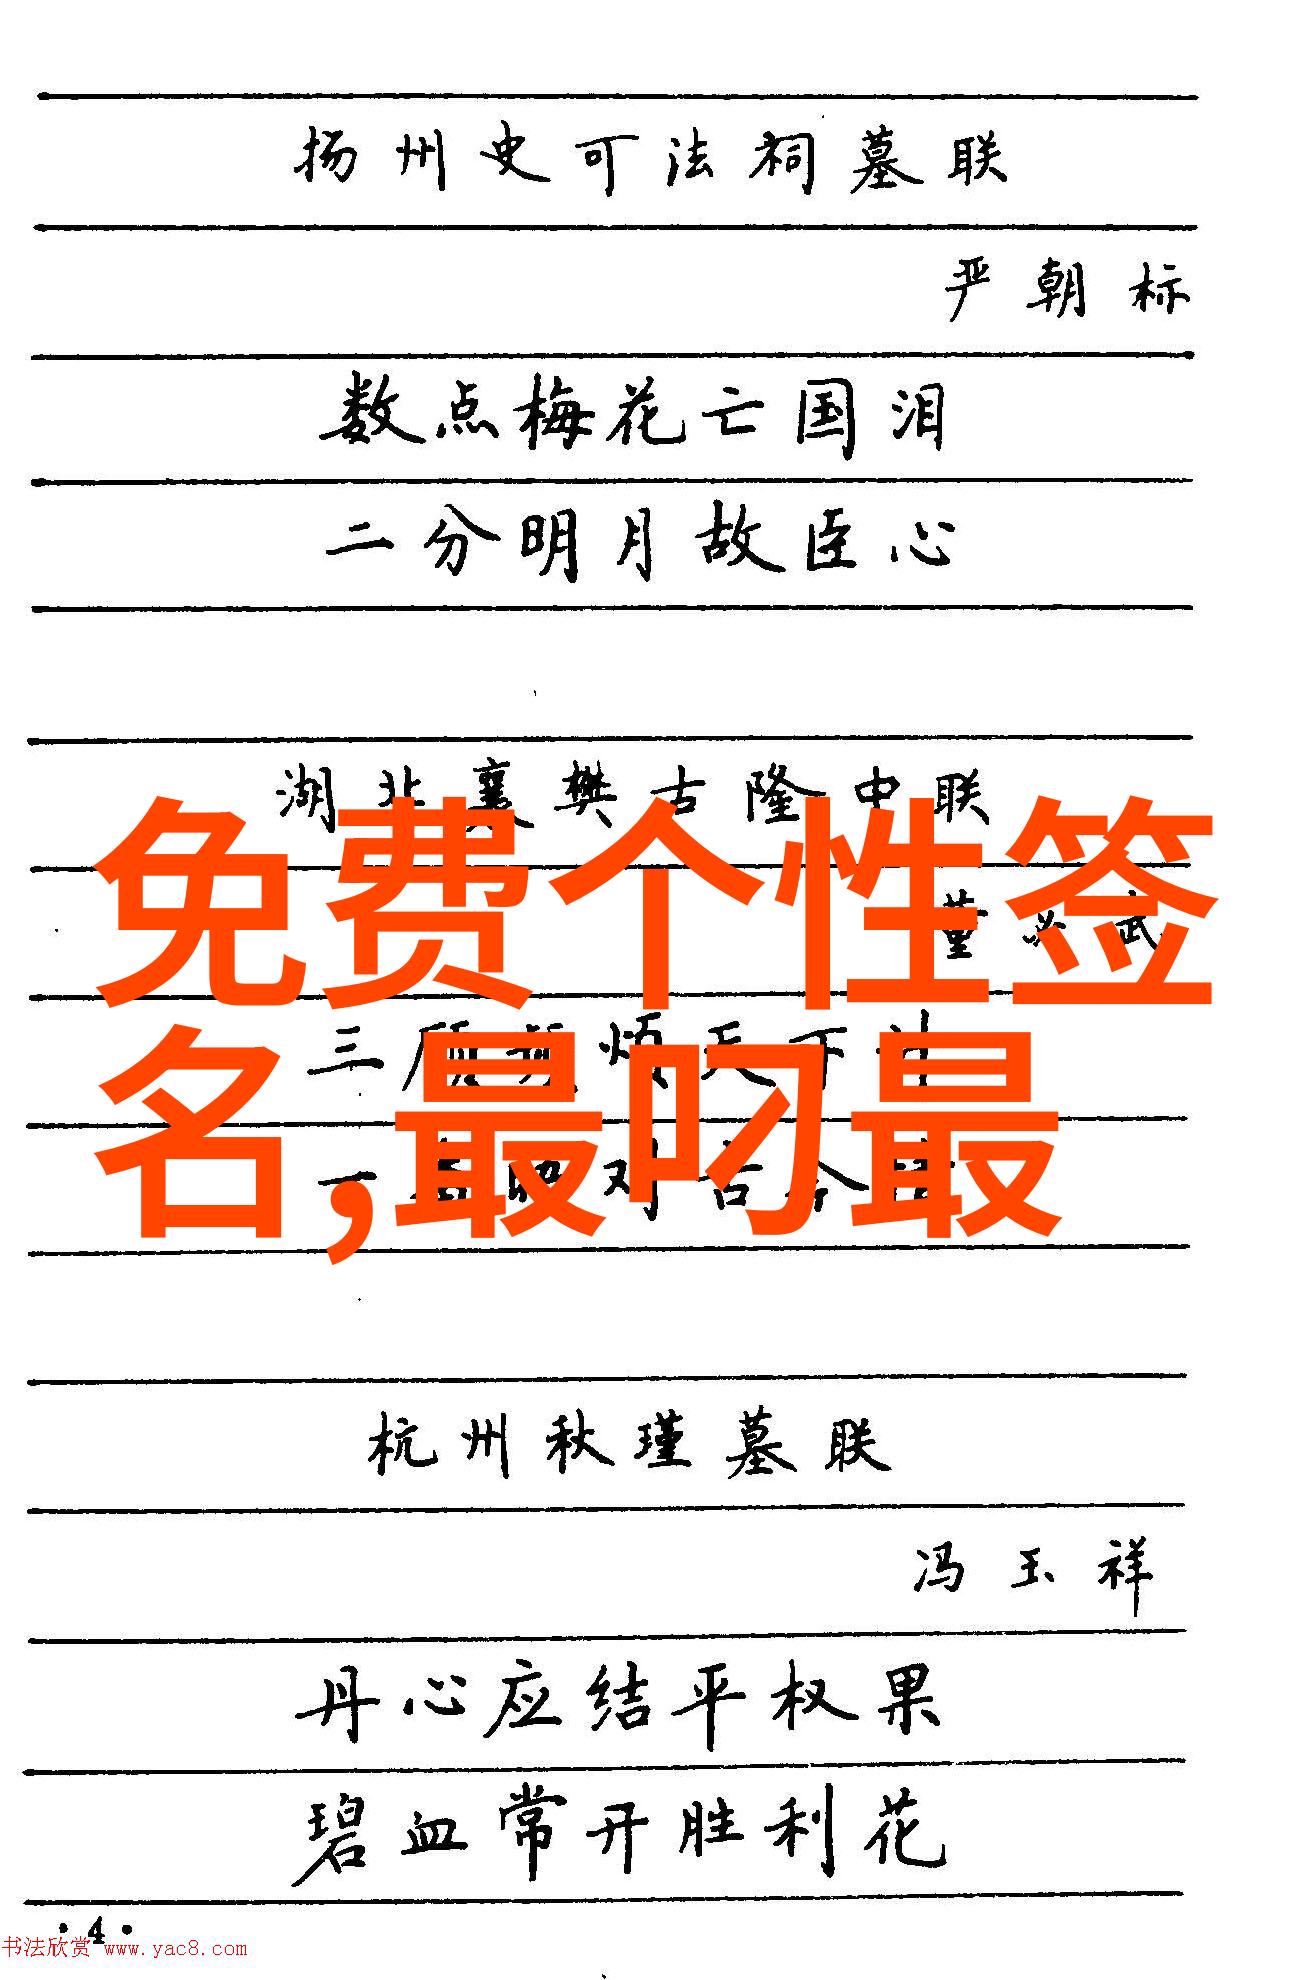 扬州史可法祠墓联
严朝标
数点梅花亡国泪
二分明月故臣心
湖北襄樊古隆中联
董必武
免费个性签
三顾频烦天下计
名,最叼最
一 对古今
杭州秋瑾墓联
冯玉祥
丹心应结平权果
碧血常开胜利花
·4·
书法欣赏 www.yac8.com